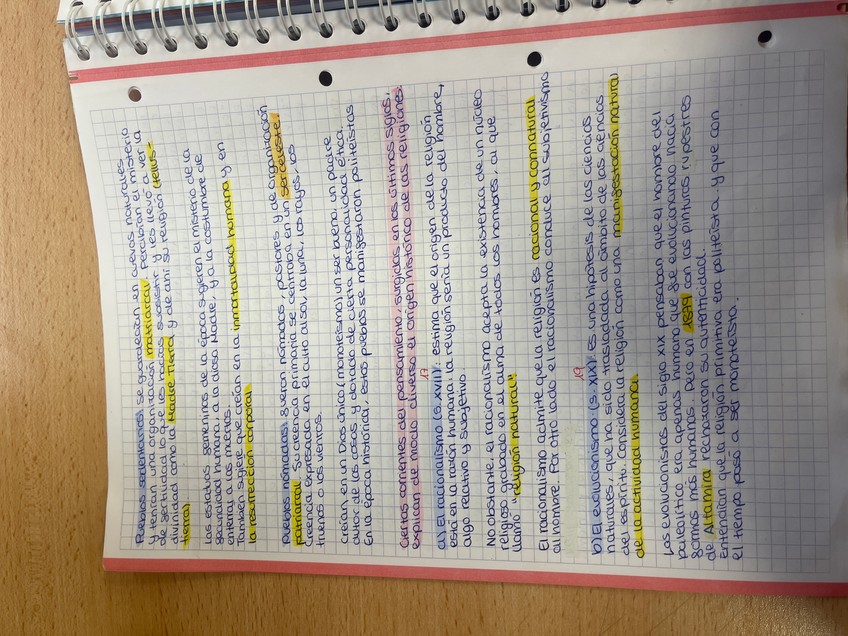 Pueblos sedentarios: se guarecían en cuevas naturales
y tenía una organización matriarcal. Percibirán el misterio
de fertilidad lo que les hacía subsistir y les llevó a ver la
divinidad como la Madre Tierra y de ahí su religión (telus-
tierra)
Las estatuas femeninas de la época sugieren el misterio de la
fecundidad humana, a la diosa Madre, y a la costumbre de
enterrar a los muertos.
También sugiere que creían en la inmortalidad humana y en
la resurrección corporal
Pueblos nómadas: fueron nómadas, pastores y de organización
patriarcal. Su creencia primaria se centraba en un ser celeste.
Creencia expresada en el culto al sol, la luna, los rayos, los
truenos o los vientos.
Creían en un Dios único (monoteísmo) un ser bueno, un padre
autor de las cosas y dotado de cierta personalidad ética.
En la época histórica, estos pueblos se manifestaron politeístas
Ciertas corrientes del pensamiento, surgidas en los últimos siglos,
explican de modo diverso el origen histórico de las religiones.
17
a) El racionalismo (s. XVII): estima que el origen de la religión
está en la razón humana: la religión sería un producto del hombre,
algo relativo y subjetivo.
No obstante, el racionalismo acepta la existencia de un núcleo
religioso grabado en el alma de todos los hombres, al que
llamó "religión natural".
El racionalismo admite que la religión es racional y connatural
al hombre. Por otro lado el racionalismo conduce al subjetivismo
19
b) El evolucionismo (s. XIX) es una hipótesis de las ciencias
naturales, que ha sido trasladada al ámbito de las ciencias
del espíritu. Considera la religión como una manifestación natural
de la actividad humana.
Los evolucionistas del siglo XIX pensaban que el hombre del
paleolítico era apenas humano y que fue evolucionando hacia
formas más humanas. Pero en 1879 con las pinturas rupestres
de Altamira rechazaron su autenticidad.
Entendían que la religión primitiva era politeísta y que con
el tiempo pasó a ser monoteísta.